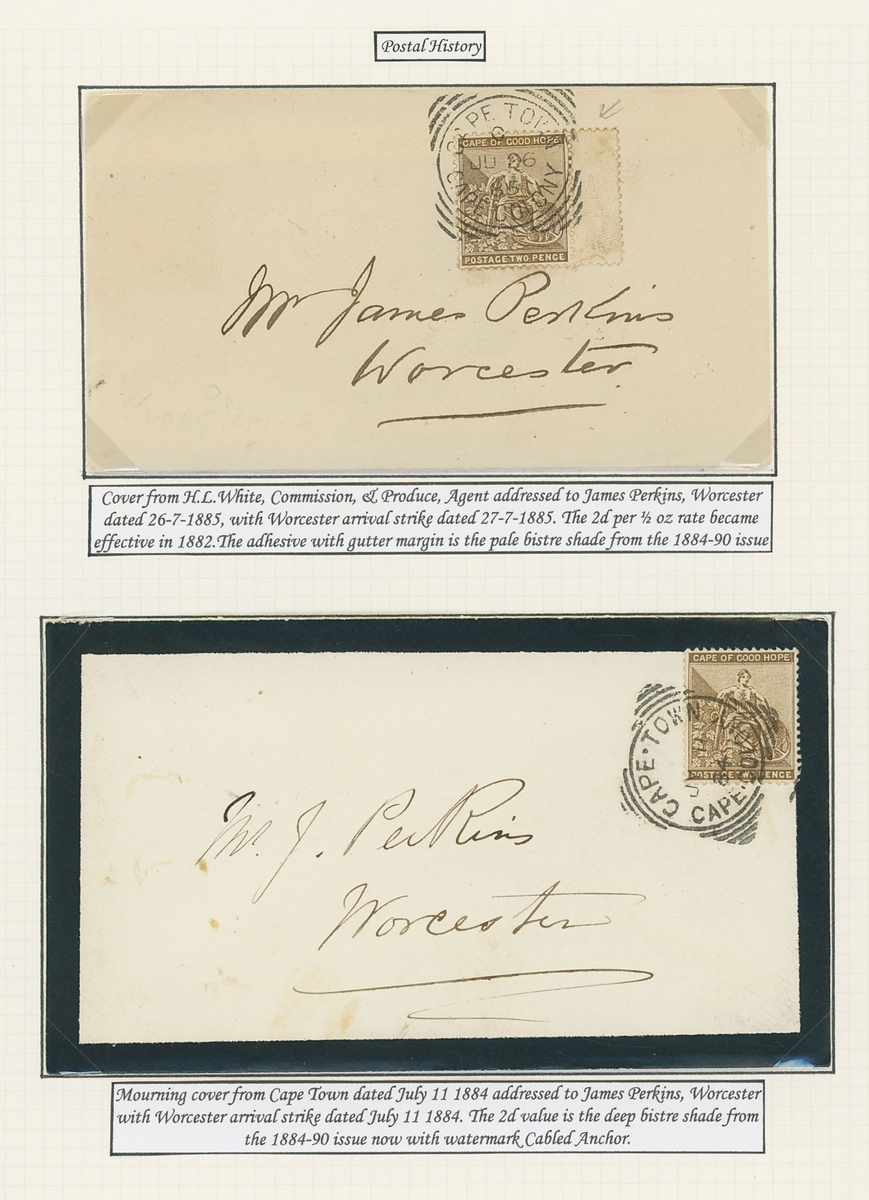 Postal History
CAPE TOWN
C
JU 26
85
CAPE COLONY
CAPE OF GOOD HOPE
POSTAGE TWO PENCE
Mr James Perkins
Worcester
Cover from H.L.White, Commission, & Produce, Agent addressed to James Perkins, Worcester
dated 26-7-1885, with Worcester arrival strike dated 27-7-1885. The 2d per ½ oz rate became
effective in 1882.The adhesive with gutter margin is the pale bistre shade from the 1884-90 issue
CAPE OF GOOD HOPE
POSTAGE TWO PENCE
CAPE · TOWN
84
Mr. J. Perkins
Worcester
Mourning cover from Cape Town dated July 11 1884 addressed to James Perkins, Worcester
with Worcester arrival strike dated July 11 1884. The 2d value is the deep bistre shade from
the 1884-90 issue now with watermark Cabled Anchor.